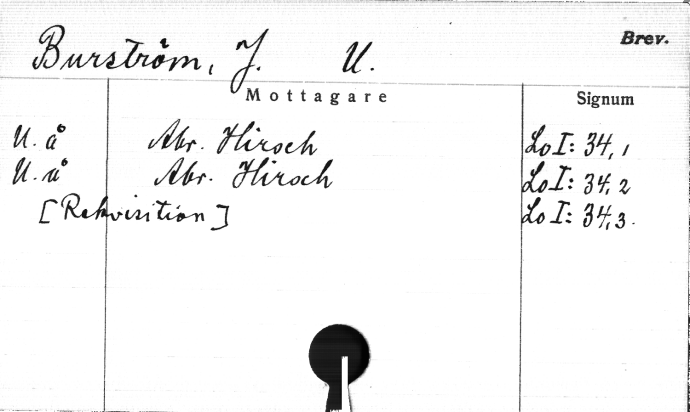 Burström, J. U.
Brev.
Mottagare
Signum
U. å Abr. Hirsch LoI: 34,1
U. å Abr. Hirsch LoI: 34,2
[Rekvisition] LoI: 34,3.